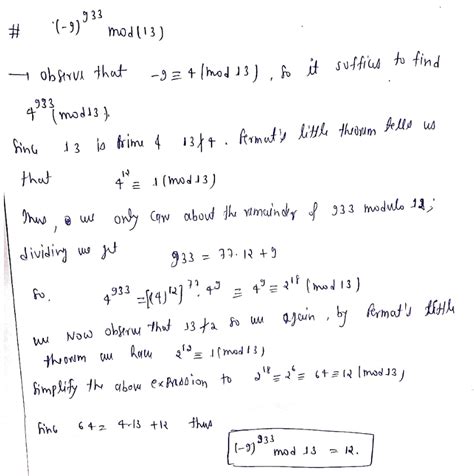 # (-9)^933 mod(13)
→ observe that -9 ≡ 4 (mod 13), so it suffices to find
4^933 (mod 13).
Since 13 is prime & 13∤4. Fermat's little theorem tells us
that 4^12 ≡ 1 (mod 13)
Thus, we only care about the remainder of 933 modulo 12;
dividing we get
933 = 77·12 + 9
So. 4^933 = [(4)^12]^77 · 4^9 ≡ 4^9 ≡ 2^18 (mod 13)
we Now observe that 13∤2 so we again, by Fermat's little
theorem we have 2^12 ≡ 1 (mod 13)
Simplify the above expression to 2^18 ≡ 2^6 ≡ 64 ≡ 12 (mod 13)
Since 64 = 4·13 + 12 thus
(-9)^933 mod 13 = 12.